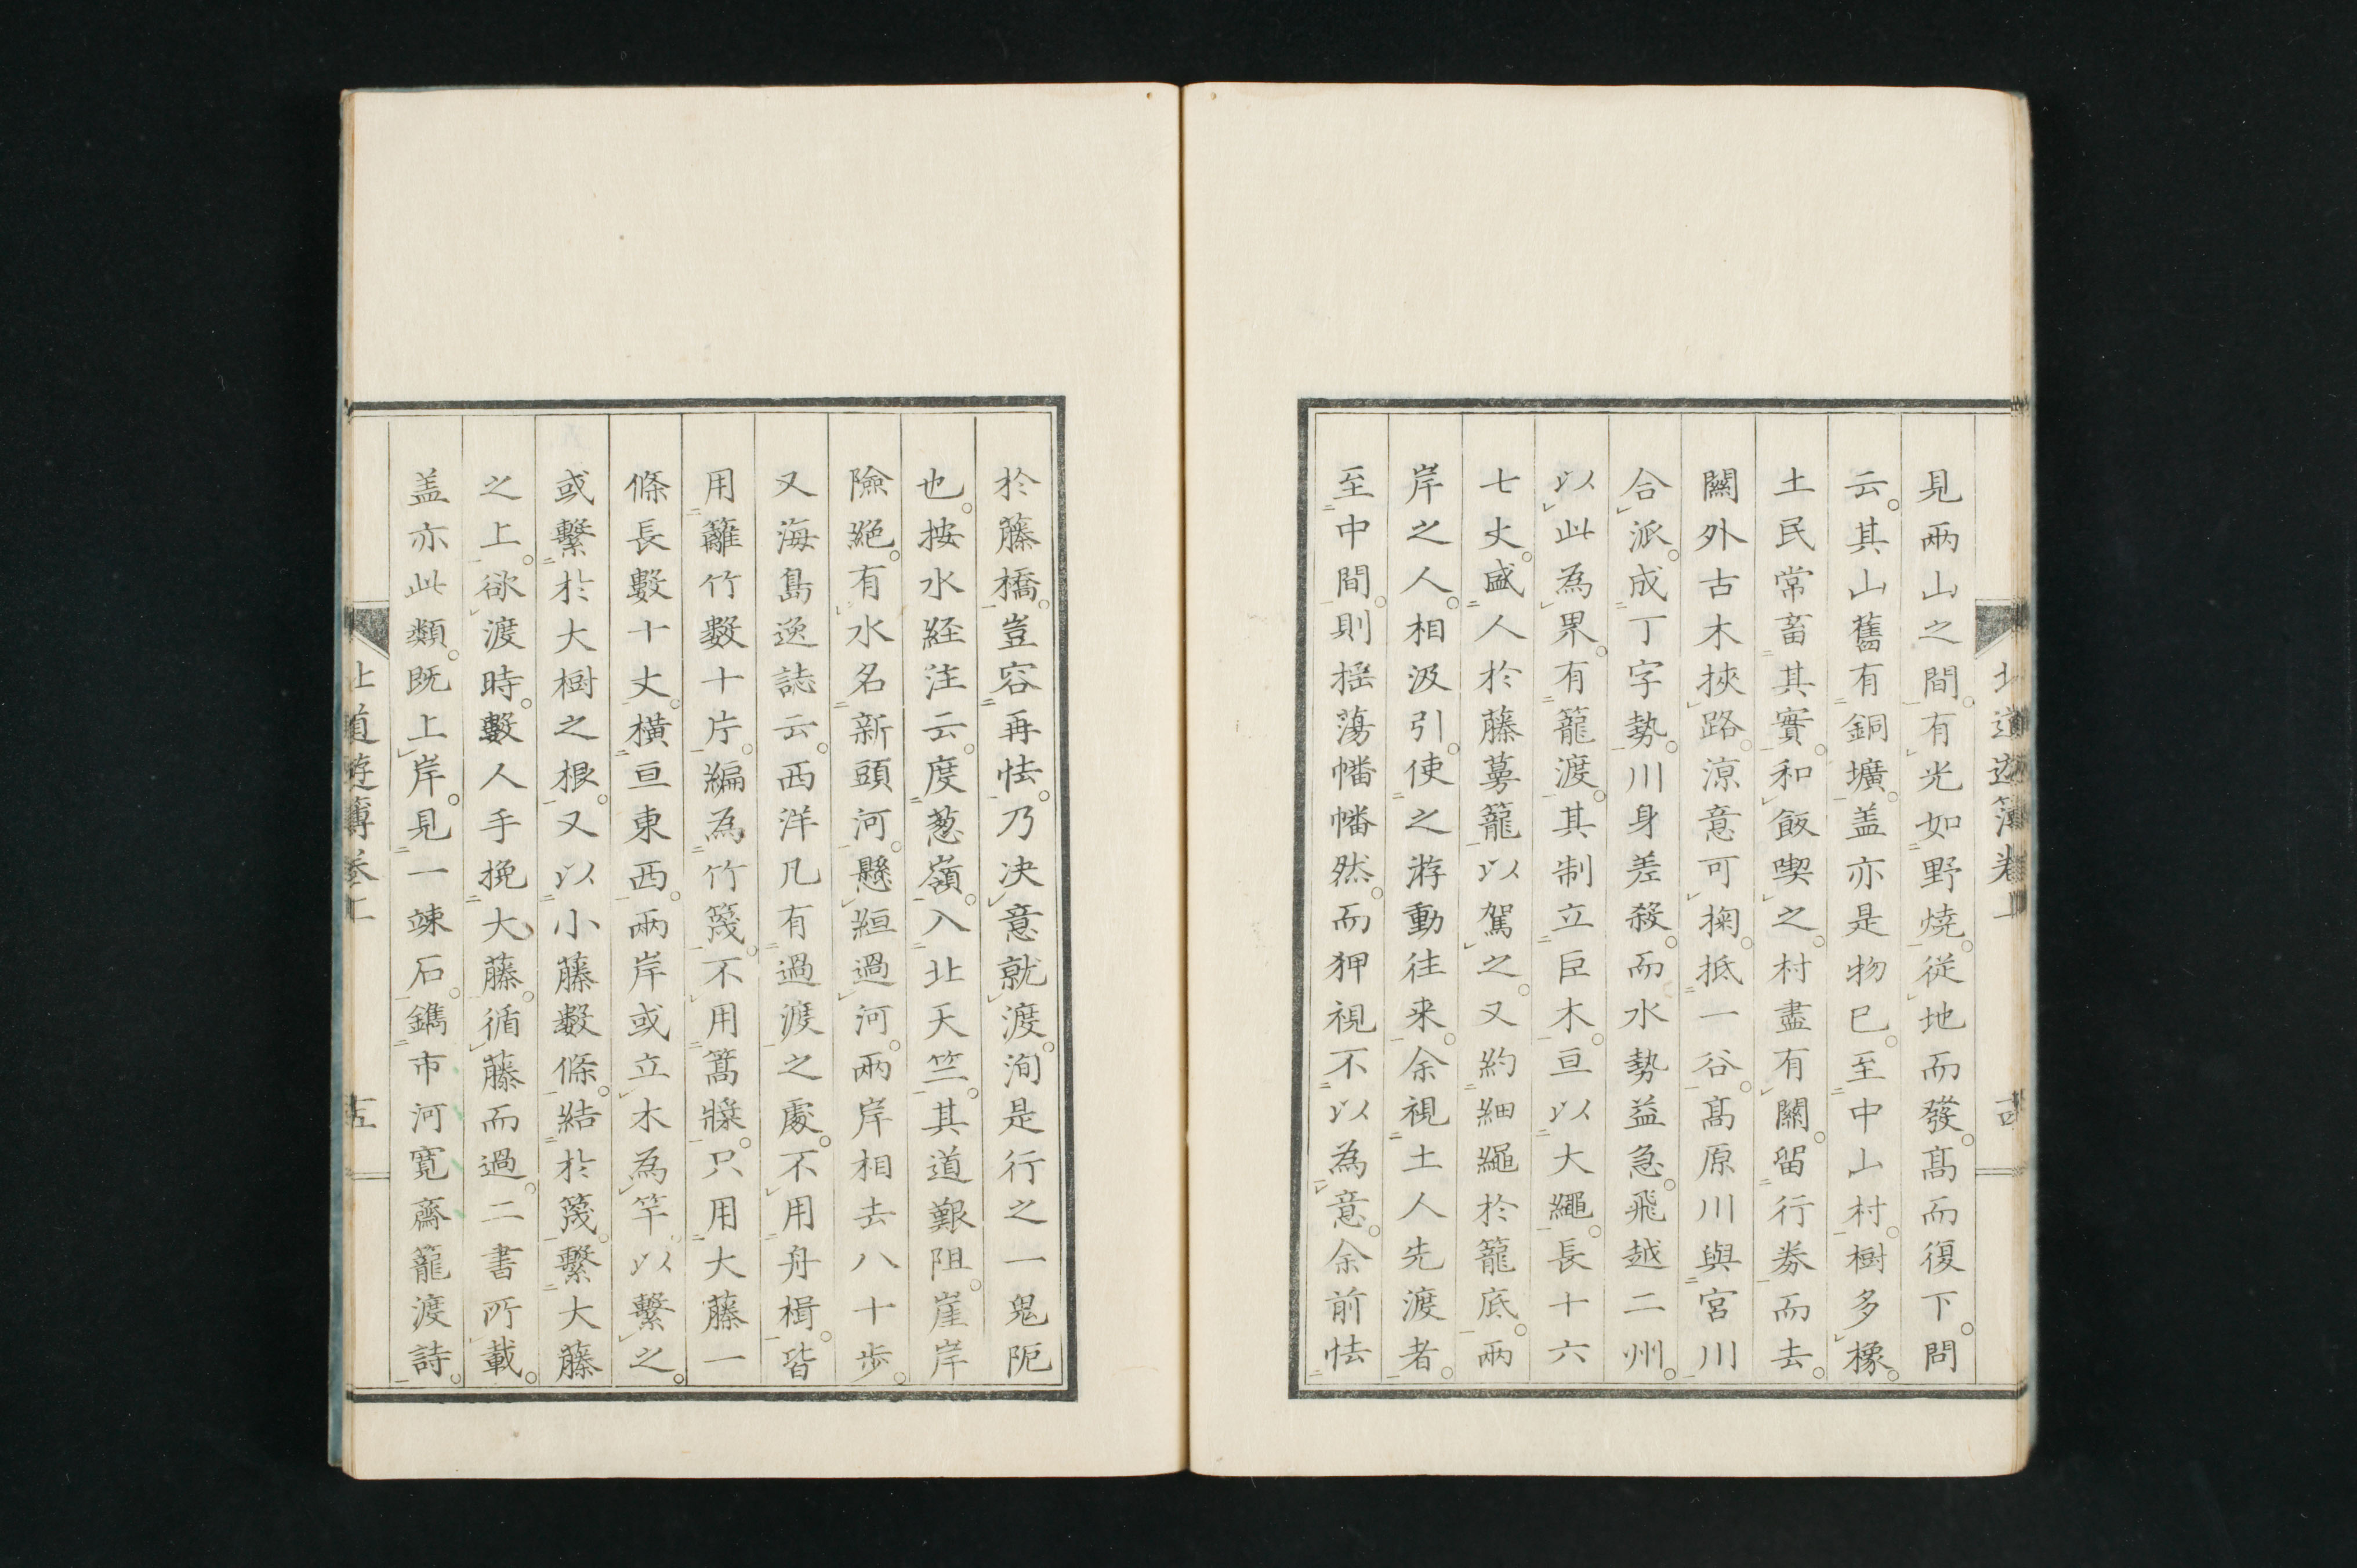 見兩山之間。有光如野燒。從地而發。髙而復下。問
云。其山舊有銅壙。盖亦是物已。至中山村。樹多橡。
土民常畜其實。和飯喫之。村盡有關。留行劵而去。
關外古木挾路。涼意可掬。抵一谷。髙原川與宮川
合派。成丁字勢。川身差殺。而水勢益急。飛越二州。
以此為界。有籠渡。其制立巨木。亘以大繩。長十六
七丈。盛人於藤蔓籠。以駕之。又約細繩於籠底。兩
岸之人。相汲引。使之游動往来。余視土人先渡者。
至中間。則揺蕩幡幡然。而狎視不以為意。余前怯
於藤橋。豈容再怯。乃决意就渡。洵是行之一鬼阨
也。按水経注云。度葱嶺。入北天竺。其道艱阻。崖岸
險絕。有水名新頭河。懸緪過河。兩岸相去八十步。
又海島逸誌云。西洋凡有過渡之處。不用舟楫。皆
用籬竹數十片。編為竹篾。不用篙槳。只用大藤一
條長數十丈。橫亘東西。兩岸或立木為竿。以繫之。
或繫於大樹之根。又以小藤數條。結於篾。繫大藤
之上。欲渡時。數人手挽大藤。循藤而過。二書所載。
盖亦此類。既上岸。見一竦石。鐫市河寬齋籠渡詩。